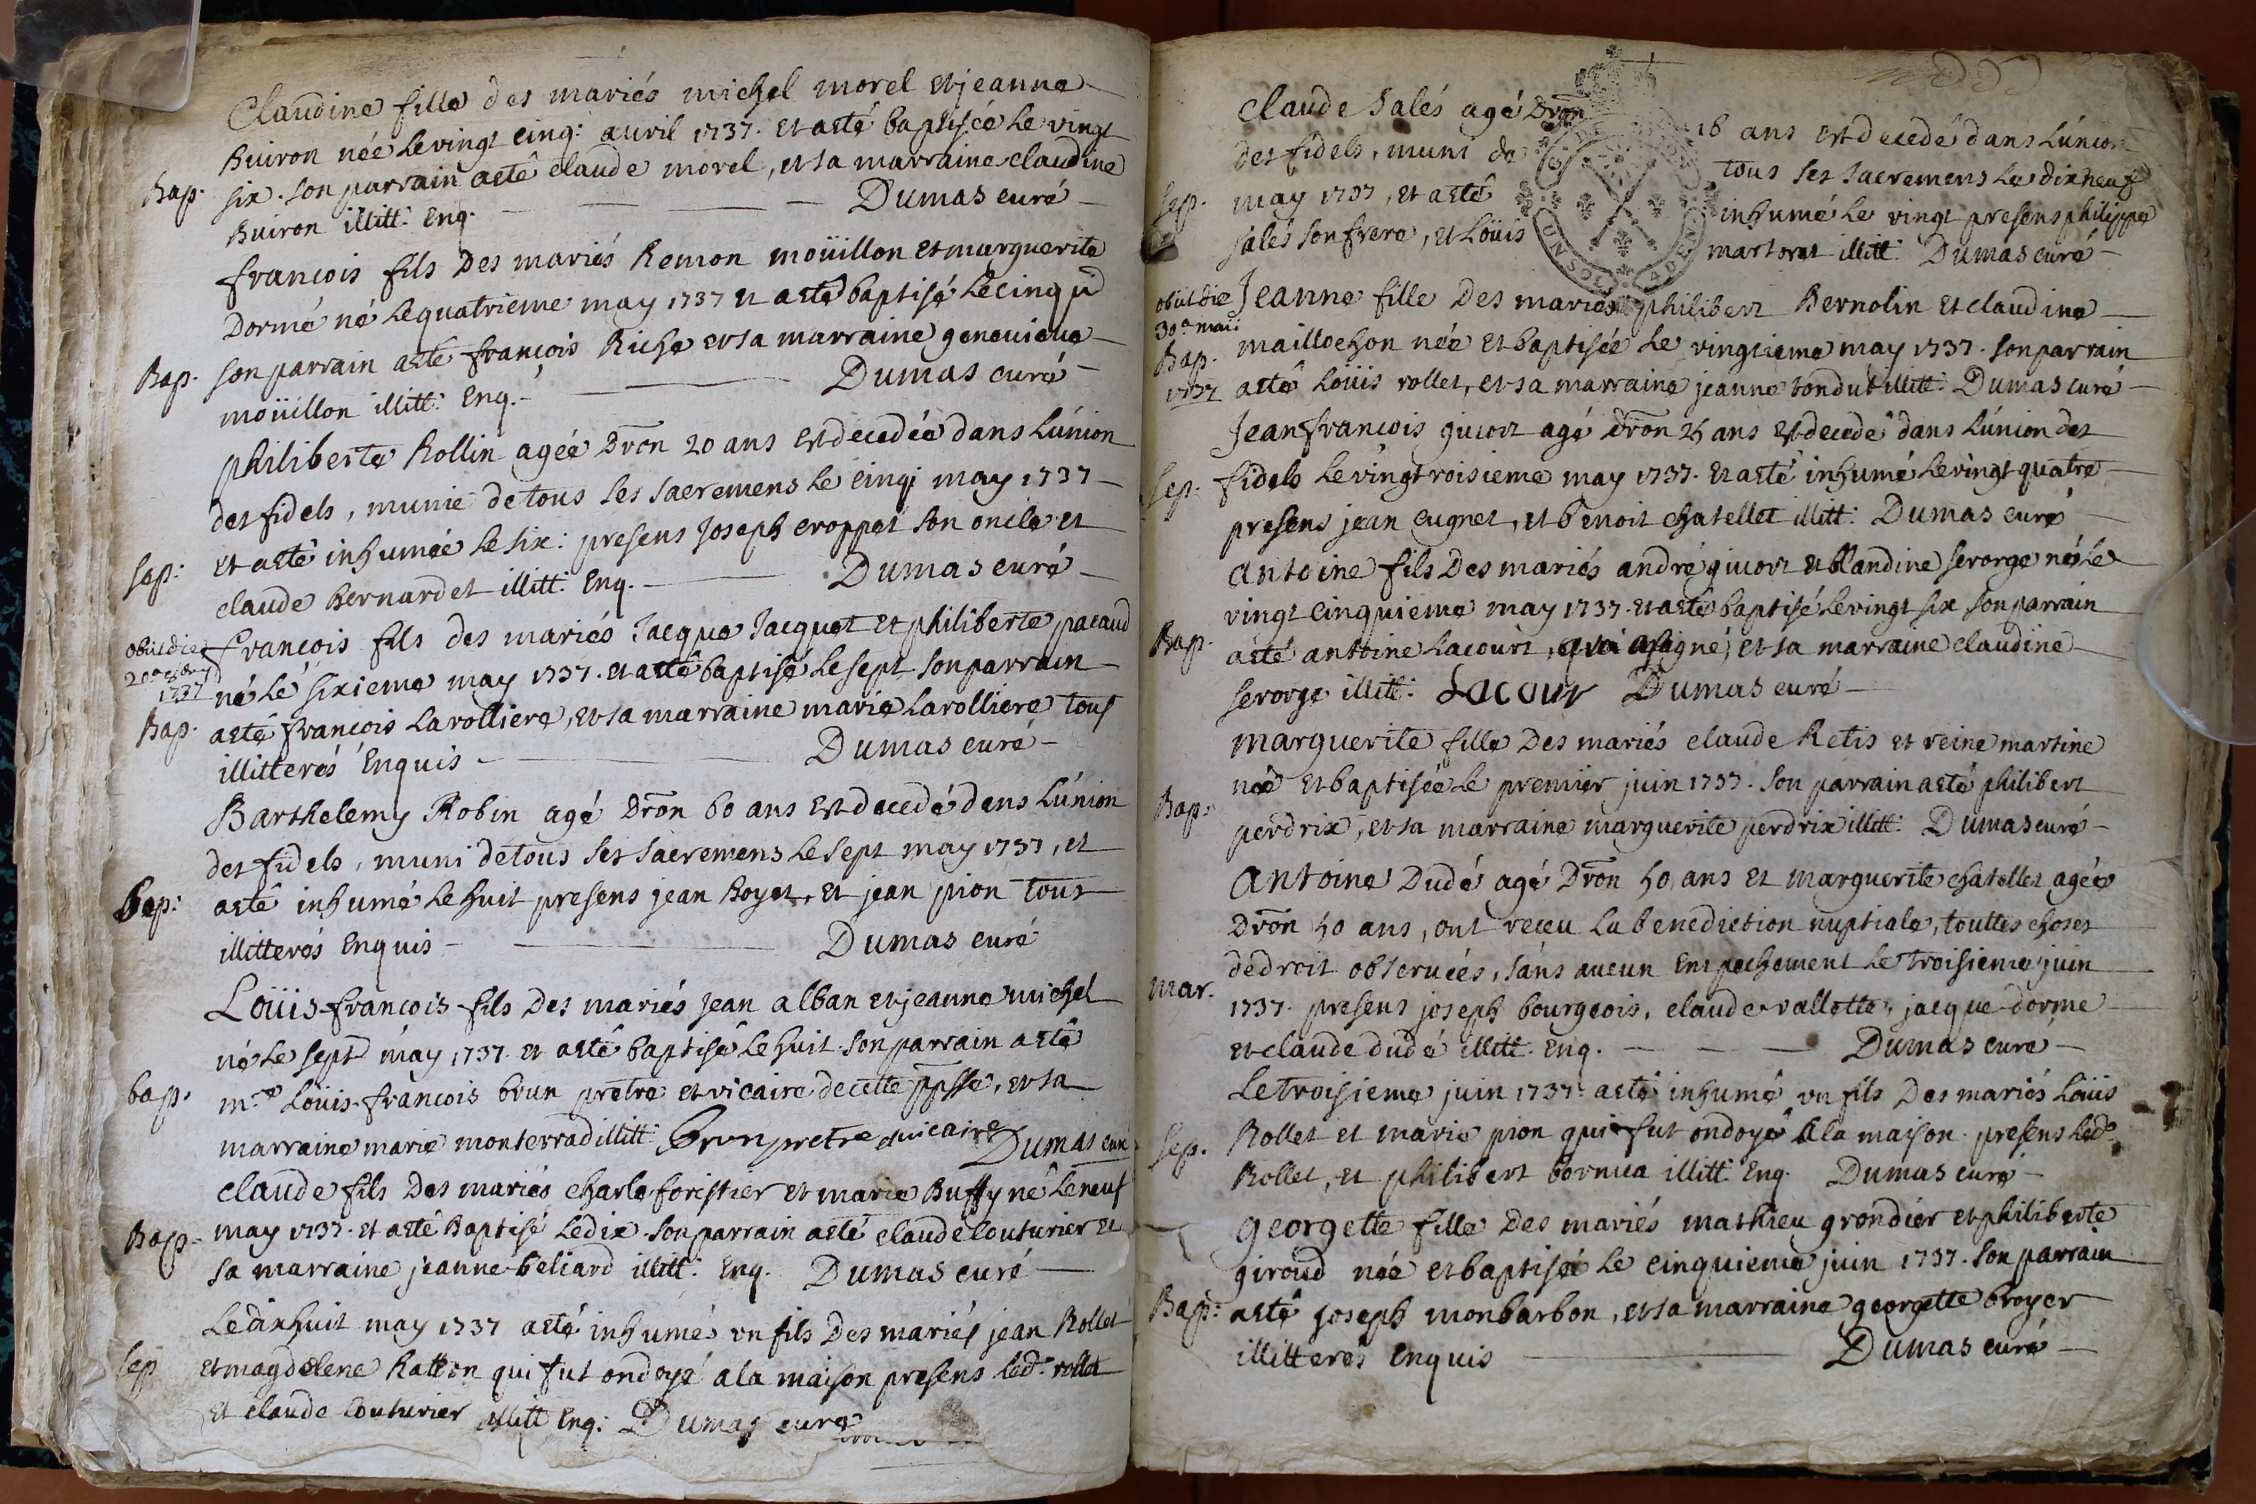 Claudine fille des mariés michel morel et jeanne
Buiron née le vingt cinq: avril 1737. et a eté baptisée le vingt
Bap. six. son parrain a eté claude morel, et sa marraine claudine
Buiron illitt: Enq. Dumas curé
francois fils Des mariés Remon moüillon et marguerite
Dormé né le quatrieme may 1737 et a eté baptisé le cinq
Bap. son parrain a eté françois Riche et sa marraine genevieve
moüillon illitt: Enq. Dumas curé
philiberte Rollin agée Dron 20 ans est decedée dans L'únion
des fidels, munie de tous ses sacremens le cinq may 1737
Sep: et a eté inhumée le six: presens Joseph croppet son oncle et
claude Bernardet illitt: Enq. Dumas curé
obiit die
20a
1737
francois fils des mariés Jacque Jacquet et philiberte pacaud
né le sixieme may 1737. et a eté baptisé le sept son parrain
Bap. a eté françois Larolliere, et sa marraine marie Larolliere tous
illitterés Enquis Dumas curé
Barthelemy Robin agé Dron 60 ans est decedé dans L'únion
des fidels, muni de tous ses sacremens le sept may 1737, et
Sep: a eté inhumé le huit presens jean Royet, et jean pion tous
illitterés Enquis Dumas curé
Loüis-francois fils Des mariés jean alban et jeanne michel
né le sept may 1737. et a eté baptisé le huit. son parrain a eté
bap. m.re Loüis-francois brun pretre et vicaire de cette ppsse, et sa
marraine marie monterrad illitt: brun pretre et vicaire Dumas curé
claude fils Des mariés charle foristier et marie Buffy né le neuf
Bap. may 1737. et a eté Baptisé le dix. son parrain a eté claude Couturier et
sa marraine jeanne beliard illitt: Enq. Dumas curé
Le dixhuit may 1737 a eté inhumé un fils Des mariés jean Rollet
Sep et magdelene Ratton qui fut ondoyé a la maison presens led.t rollet
et claude Couturier illitt Enq: Dumas curé
claude Salés agé Dron 18 ans est decedé dans L'únion
des fidels, muni de tous ses sacremens le dixneuf
Sep. may 1737, et a eté inhumé le vingt presens philippe
salés son frere, et Loüis martoret illitt: Dumas curé
obiit die
30a maii
1737
Jeanne fille Des mariés philibert Bernolin et claudine
Bap. maillochon née et baptisée le vingtieme may 1737. son parrain
a eté Loüis rollet, et sa marraine jeanne tondut illitt: Dumas curé
Jean francois guicort agé Dron 25 ans est decedé dans L'únion des
Sep. fidels le vingt roisieme may 1737. et a eté inhumé le vingt quatre
presens jean cugnet, et benoit chatellet illitt: Dumas curé
antoine fils Des mariés andré guicort et blandine serorge né le
vingt cinquieme may 1737. et a eté baptisé le vingt six son parrain
Bap. a eté antoine Lacourt, qui a signé, et sa marraine claudine
serorge illitt: Lacour Dumas curé
marguerite fille Des mariés claude Retis et reine martine
née et baptisée le premier juin 1737. son parrain a eté philibert
Bap: perdrix, et sa marraine marguerite perdrix illitt: Dumas curé
antoine Dudé agé Dron 50 ans et marguerite chatellet agée
Dron 50 ans, ont reçeu la benediction nuptiale, touttes choses
de droit observées, sans aucun Empechement le troisieme juin
mar. 1737. presens joseph bourgeois, claude vallette, jacque dorme
et claude dudé illitt. Enq. Dumas curé
Le troisieme juin 1737. a eté inhumé un fils Des mariés Loüis
Sep. Rollet et marie pion qui fut ondoyé a la maison. presens led.t
Rollet, et philibert bornua illitt: Enq. Dumas curé
georgette fille Des mariés mathieu grondier et philiberte
giroud née et baptisée le cinquieme juin 1737. son parrain
Bap: a eté joseph monbarbon, et sa marraine georgette broyer
illitterés Enquis Dumas curé